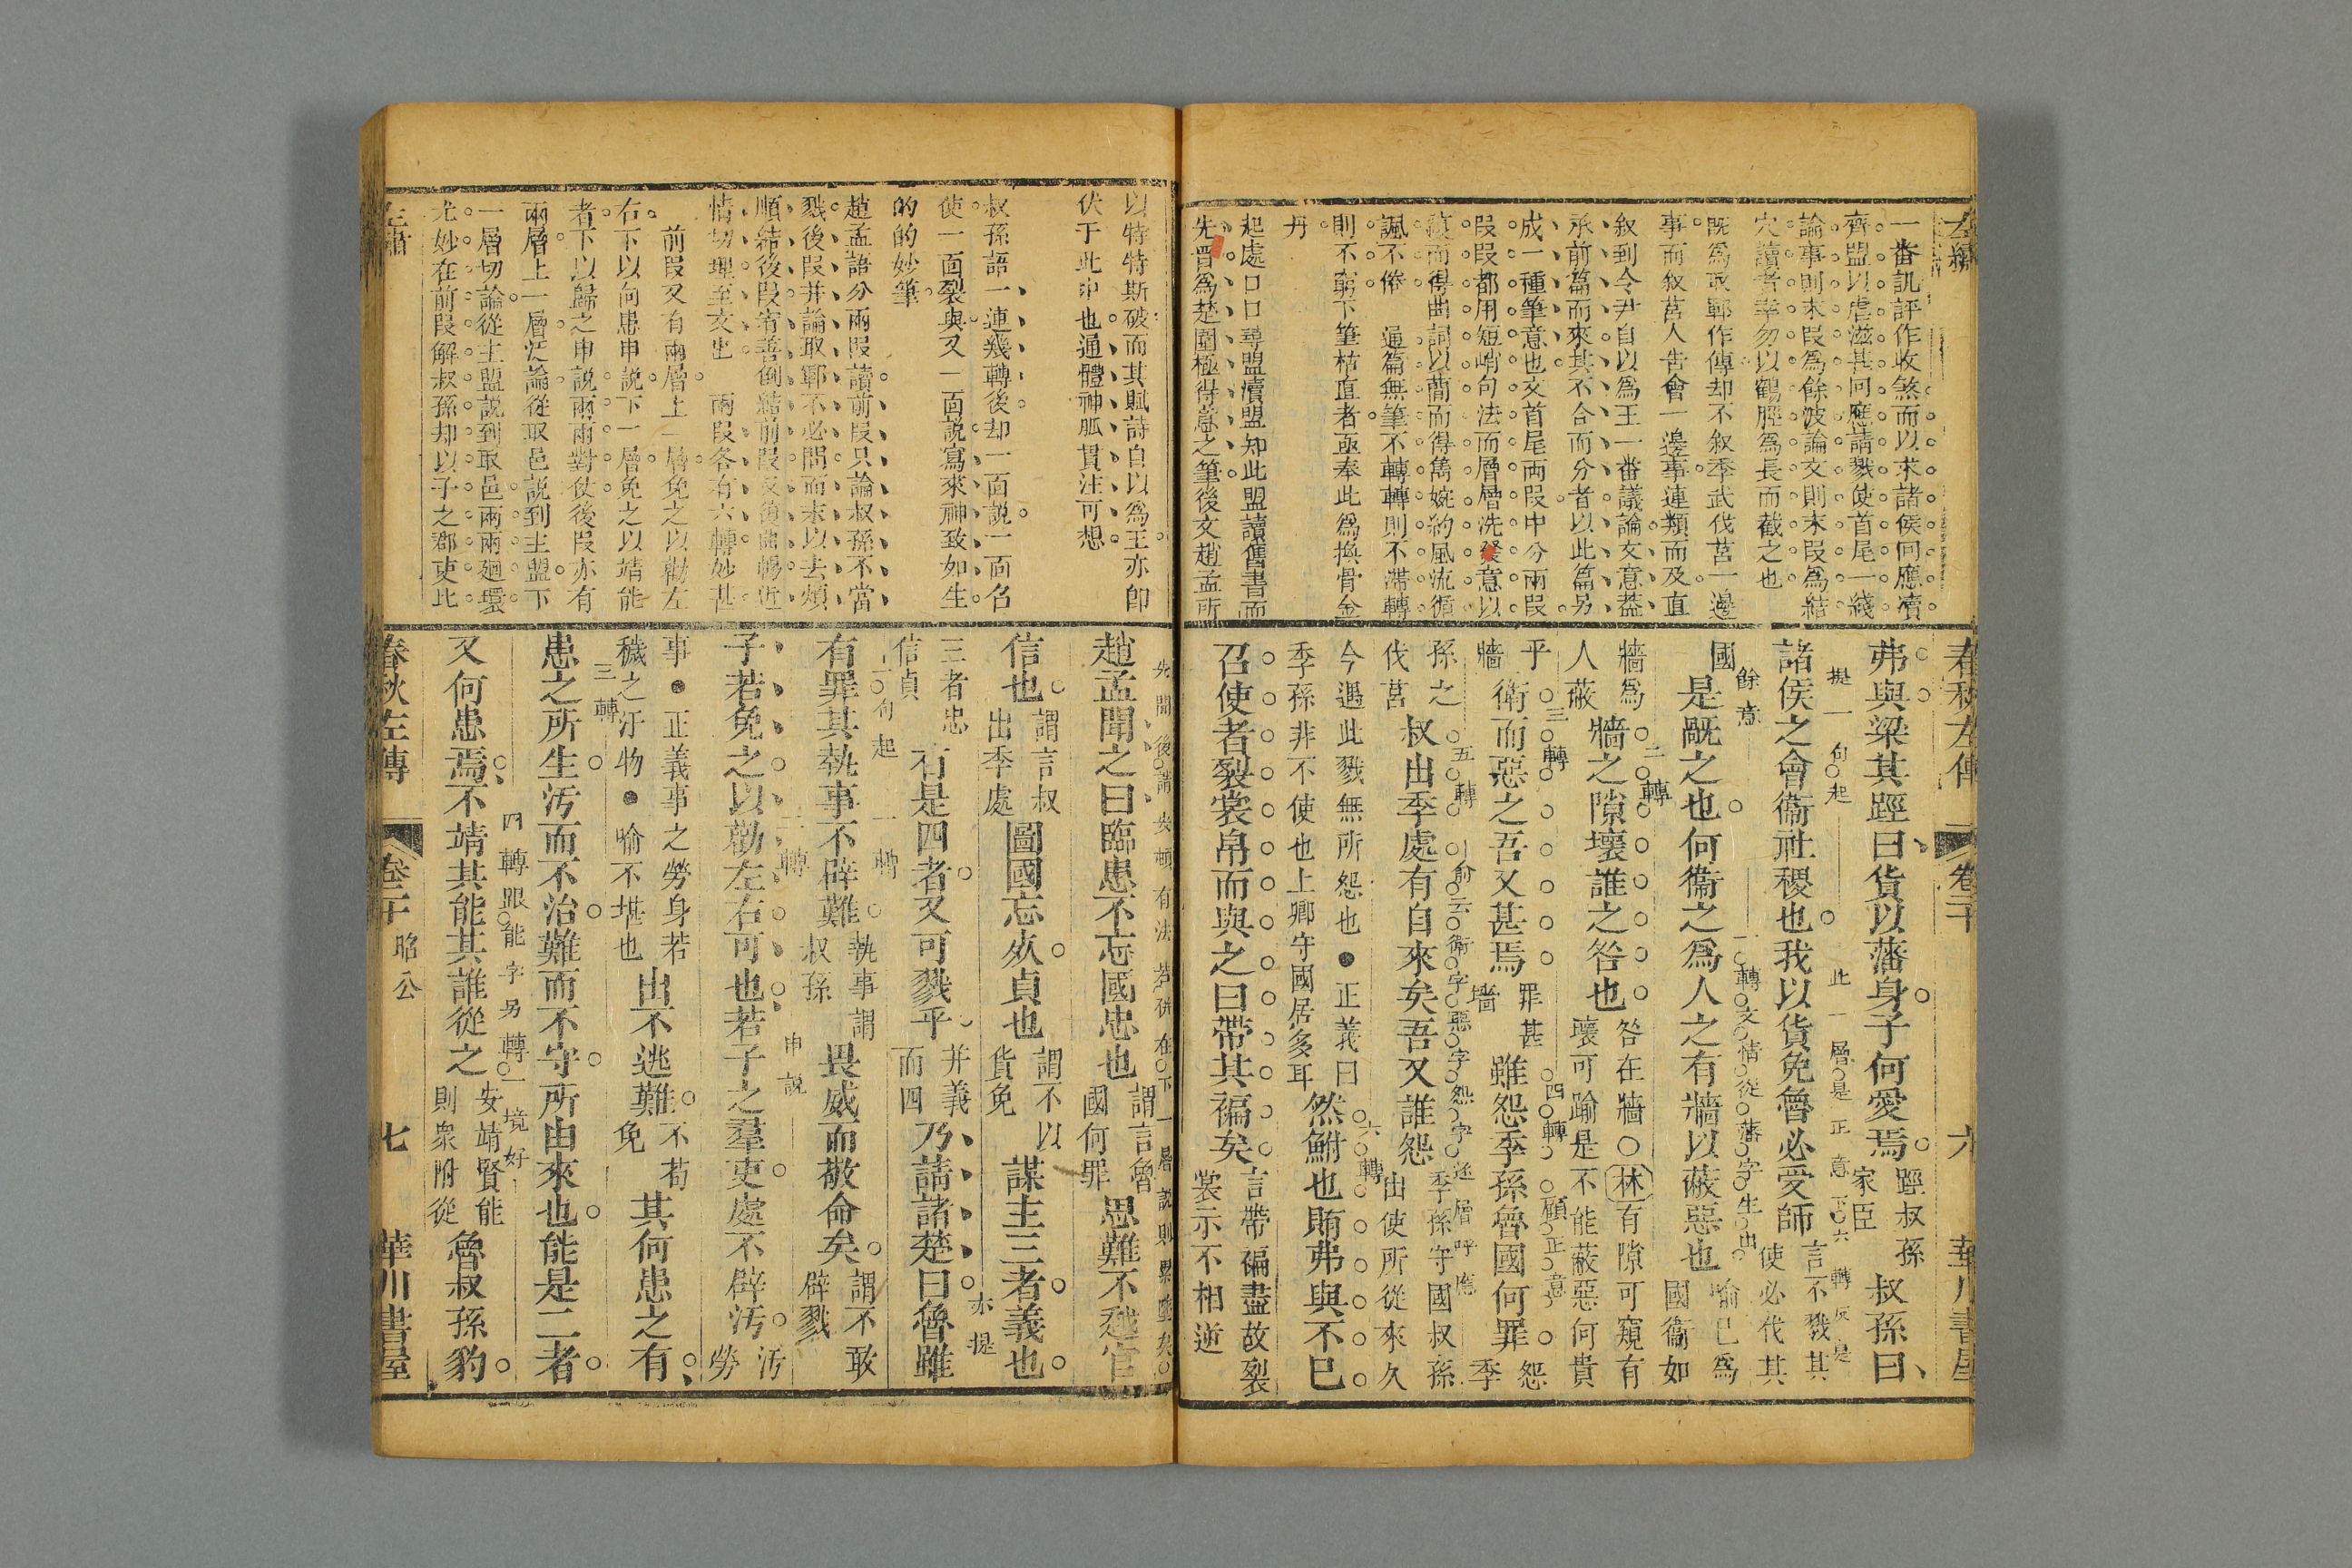 左繡
一番訊評作收煞而以求諸侯何應瀆
齊盟以虐滋甚何應請戮使首尾一綫
論事則末段爲餘波論文則末段爲結
穴讀者幸勿以鶴脛爲長而截之也
旣爲取鄆作傳却不叙季武伐莒一邊
事而叙莒人告會一邊事連類而及直
叙到令尹自以爲王一番議論文意葢
承前篇而來其不合而分者以此篇另
成一種筆意也文首尾兩段中分兩段
段段都用短峭句法而層層洗發意以
而得曲詞以蕳而得雋婉約風流循
諷不倦 通篇無筆不轉轉則不滯轉
則不窮下筆枯直者亟奉此爲換骨金
丹
起處口口尋盟瀆盟知此盟讀舊書而
先晉爲楚圍極得意之筆後文趙孟所
春秋左傳
卷二十
六
華川書屋
弗與梁其踁曰貨以藩身子何愛焉 踁叔孫家臣 叔孫曰
提一句起
此一層是正意下六轉反是
諸侯之會衞社稷也我以貨免魯必受師 言不戮其使必伐其
國 是禍之也何衞之爲人之有牆以蔽惡也 喻已爲國衞如
餘意
一轉文情從藩字生出
牆爲人蔽 牆之隙壞誰之咎也 咎在牆○林有隙可窺有壞可踰是不能蔽惡何貴
二轉
乎牆 衛而惡之吾又甚焉 罪甚牆 雖怨季孫魯國何罪 怨季
三轉
四轉
顧正意
孫之伐莒 叔出季處有自來矣吾又誰怨 季孫守國叔孫出使所從來久
五轉
俞云衛字惡字怨字逐層呼應
今遇此戮無所怨也●正義曰季孫非不使也上卿守國居多耳 然鮒也賄弗與不已
六轉
召使者裂裳帛而與之曰帶其褊矣 言帶褊盡故裂裳示不相逆
以特特斯破而其賦詩自以爲王亦卽
伏于此中也通體神脈貫注可想
叔孫語一連幾轉後却一面説一面名
使一面裂與又一面説寫來神致如生
的的妙筆
趙孟語分兩段讀前段只論叔孫不當
戮後段并論取鄆不必問而末以去煩
順結後段宥善倒結前段反復曲暢近
情切理至文也 兩段各有六轉妙甚
前段又有兩層上一層免之以勸左
右下以何患申説下一層免之以靖能
者下以歸之申説兩兩對仗後段亦有
兩層上一層泛論從取邑説到主盟下
一層切論從主盟説到取邑兩兩廻環
尤妙在前段解叔孫却以子之郡吏比
趙孟聞之曰臨患不忘國忠也 謂言魯國何罪 思難不越官
先開後講安頓有法若併在下一層説則累墜矣
信也 謂言叔出季處 圖國忘死貞也 謂不以貨免 謀主三者義也
三者忠信貞 有是四者又可戮乎 并義而四 乃請諸楚曰魯雖
亦提
有罪其執事不辟難 執事謂叔孫 畏威而敬命矣 謂不敢辟戮
二句起
一轉
子若免之以勸左右可也若子之羣吏處不辟汚 汚勞
二轉
申説
事●正義事之勞身若穢之汙物●喻不堪也 出不逃難 不苟免 其何患之有
患之所生汚而不治難而不守所由來也能是二者
三轉
又何患焉不靖其能其誰從之 安靖賢能則衆附從 魯叔孫豹
四轉跟能字另轉一境好
左繡
春秋左傳
卷二十 昭公
七
華川書屋